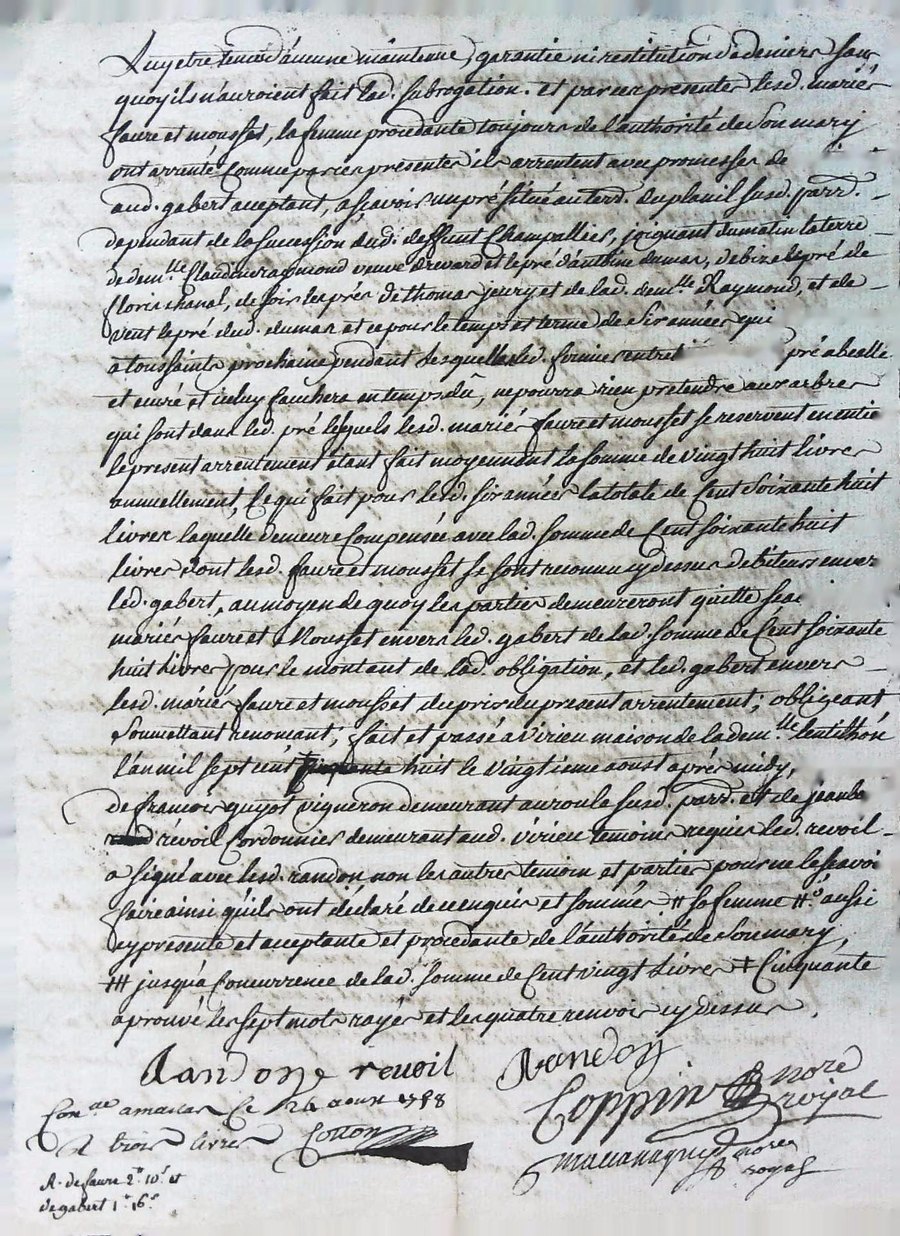 Luy etre tenus d'aucune maintenue, garantie ni restitution de deniers sans
quoy ils n'auroient fait lad. subrogation. et par ces presentes lesd. mariés
faure et mousset, la femme procedante toujours de l'authorité de son mary
ont arrenté comme par ces presentes ils arrentent avec promesses de
aud. gabert aceptant, asçavoir un pré situé au terr. du planil susd. parr.
dependant de la succession dud. deffunt Champallier, joignant du matin la terre
de dem.lle Claudine raymond veuve et le pré d'anthne dumas, de bize le pré de
floris chanal, de soir les prés de thomas jeury et de lad. dem.lle Raymond, et de
vent le pré dud. dumas et ce pour le temps et terme de six années qui
a toussaints prochaine pendant lesquelles led. fermier entret pré abeallé
et curé et iceluy fauchera en temps dû, ne pourra rien pretendre aux arbres
qui sont dans led. pré lesquels lesd. mariés faure et mousset se reservent en entie
le present arrentement étant fait moyennant la somme de vingt huit livres
annuellement, ce qui fait pour lesd. six années la totale de Cent soixante huit
livres laquelle demeure compensée avec lad. somme de Cent soixante huit
livres dont lesd. faure et mousset se sont reconnu cy dessus debiteurs envers
led. gabert, au moyen de quoy les parties demeureront quitte
mariés faure et Mousset envers led. gabert de lad. somme de Cent soixante
huit livres pour le montant de lad. obligation, et led. gabert envers
lesd. mariés faure et mousset du pris du present arrentement; obligeant
soumettant renonçant; fait et passé a Virieu maison de la dem.lle lentilhon
l'an mil sept cent huit le vingtieme aoust aprés midy,
de francois guyot vigneron demeurant au roule susd. parr. et de jean
revoil Cordonnier demeurant aud. virieu temoins requis led. revoil
a signé avec lesd. randon non les autres temoin et parties pour ne le sçavoi
faire ainsi qu'ils ont déclaré de ce enquis et sommés # sa femme #° aussi
cy presente et acceptante et procedante de l'authorité de son mary,
### jusqu'a Concurrence de lad. somme de Cent vingt livres ‡ Cinquante
aprouvé les sept mots rayés et les quatre renvois cy dessus.
Randon revoil Randon
Coppin nore royal
Con.lle a ce 24 aoust 1758
R trois livres Cotton
nore royal
R. de faure 2# 10s et
de gabert 1# 16s